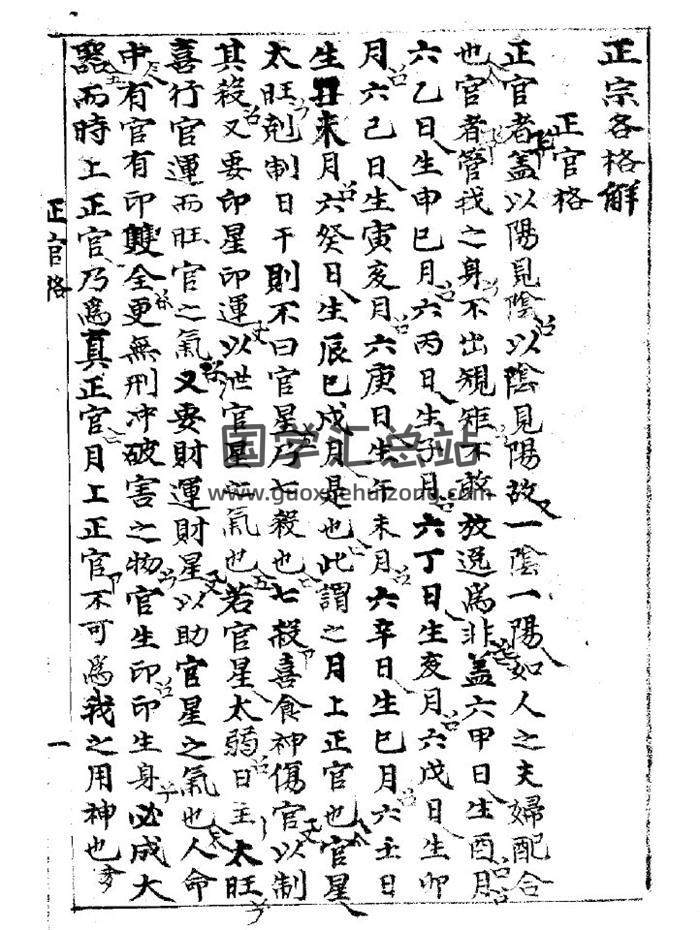 正宗各格解
正官格
正官者盖以陽見陰以陰見陽故一陰一陽如人之夫婦配合
也官者管我之身不出規矩不敢放逸爲非盖六甲日生酉月
六乙日生申巳月六丙日生子月六丁日生亥月六戊日生卯
月六己日生寅亥月六庚日生午未月六辛日生巳月六壬日
生丑未月六癸日生辰巳戌月是也此謂之月上正官也官星
太旺剋制日干則不曰官星乃七殺也七殺喜食神傷官以制
其殺又要印星印運以泄官星之氣也若官星太弱日主太旺
喜行官運而旺官之氣又要財運財星以助官星之氣也人命
中有官有印雙全更無刑冲破害之物官生印印生身必成大
器而時上正官乃爲真正官月上正官不可爲我之用神也
正官格
一
国学汇总站
www.guoxuehuizong.com